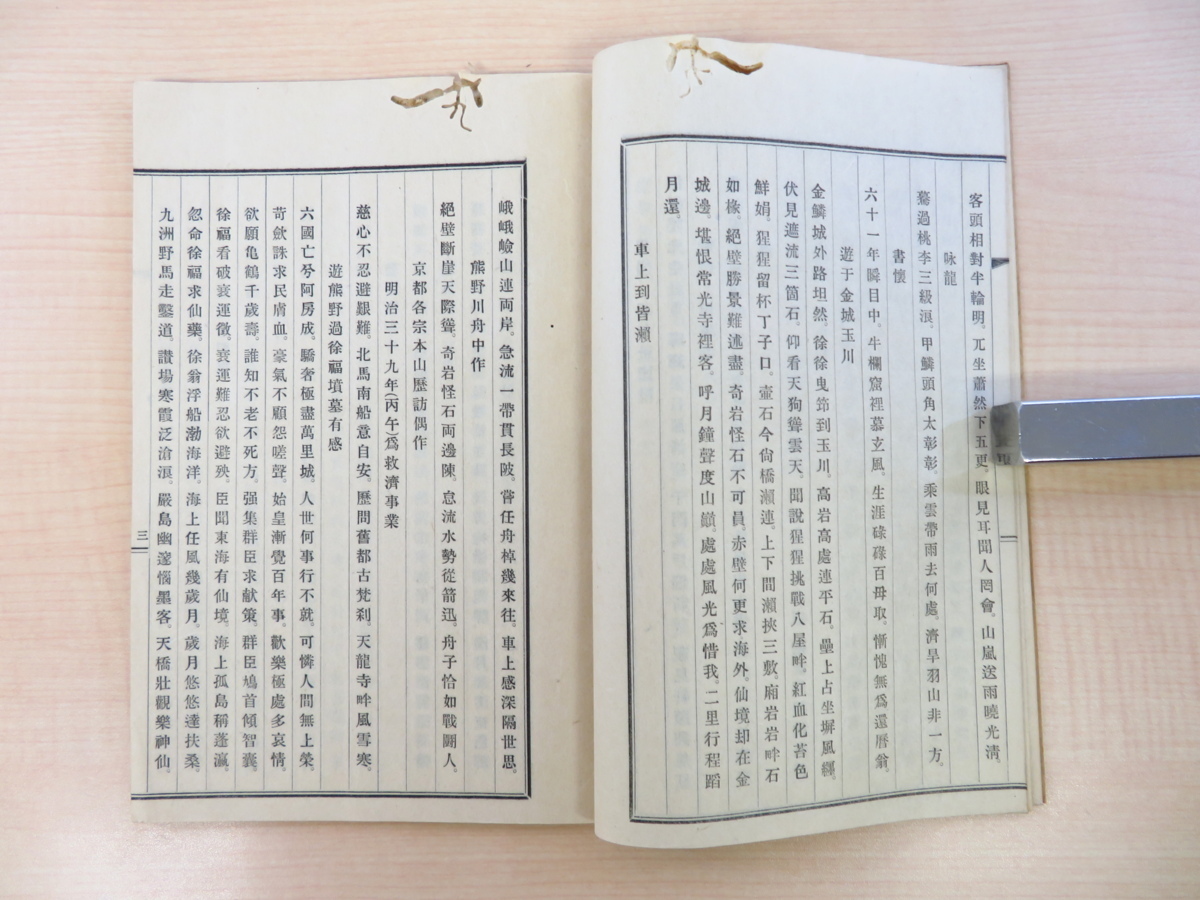 客頭相對半輪明。兀坐蕭然下五更。眼見耳聞人罔會。山嵐送雨曉光淸。
咏龍
驀過桃李三級浪。甲鱗頭角太彰彰。乘雲帶雨去何處。濟旱羽山非一方。
書懷
六十一年瞬目中。牛欄窟裡慕玄風。生涯碌碌百毋取。慚愧無爲還曆翁。
遊于金城玉川
金鱗城外路坦然。徐徐曳筇到玉川。高岩高處連平石。壘上占坐塀風繹。
伏見遮流三箇石。仰看天狗聳雲天。聞說猩猩挑戰八屋畔。紅血化苔色
鮮娟。猩猩留杯丁子口。壺石今尙橋瀨連。上下間瀨挾三敷。廟岩岩畔石
如椽。絕壁勝景難述盡。奇岩怪石不可員。赤壁何更求海外。仙境却在金
城邊。堪恨常光寺裡客。呼月鐘聲度山巓。處處風光爲惜我。二里行程蹈
月還。
車上到皆瀨
峨峨嶮山連両岸。急流一帶貫長陂。甞任舟棹幾來往。車上感深隔世思。
熊野川舟中作
絕壁斷崖天際聳。奇岩怪石両邊陳。怠流水勢從箭迅。舟子恰如戰鬪人。
京都各宗本山歷訪偶作
明治三十九年(丙午爲救濟事業
慈心不忍避艱難。北馬南船意自安。歷問舊都古梵刹。天龍寺畔風雪寒。
遊熊野過徐福墳墓有感
六國亡兮阿房成。驕奢極盡萬里城。人世何事行不就。可憐人間無上榮。
苛歛誅求民膚血。豪氣不顧怨嗟聲。始皇漸覺百年事。歡樂極處多哀情。
欲願亀鶴千歲壽。誰知不老不死方。强集群臣求献策。群臣鳩首傾智囊。
徐福看破衰運徵。衰運難忍欲避殃。臣聞東海有仙境。海上孤島稱蓬瀛。
忽命徐福求仙藥。徐翁浮船渤海洋。海上任風幾歲月。歲月悠悠達扶桑。
九洲野馬走鑿道。讃場寒霞泛滄浪。嚴島幽邃惱墨客。天橋壯觀樂神仙。
三